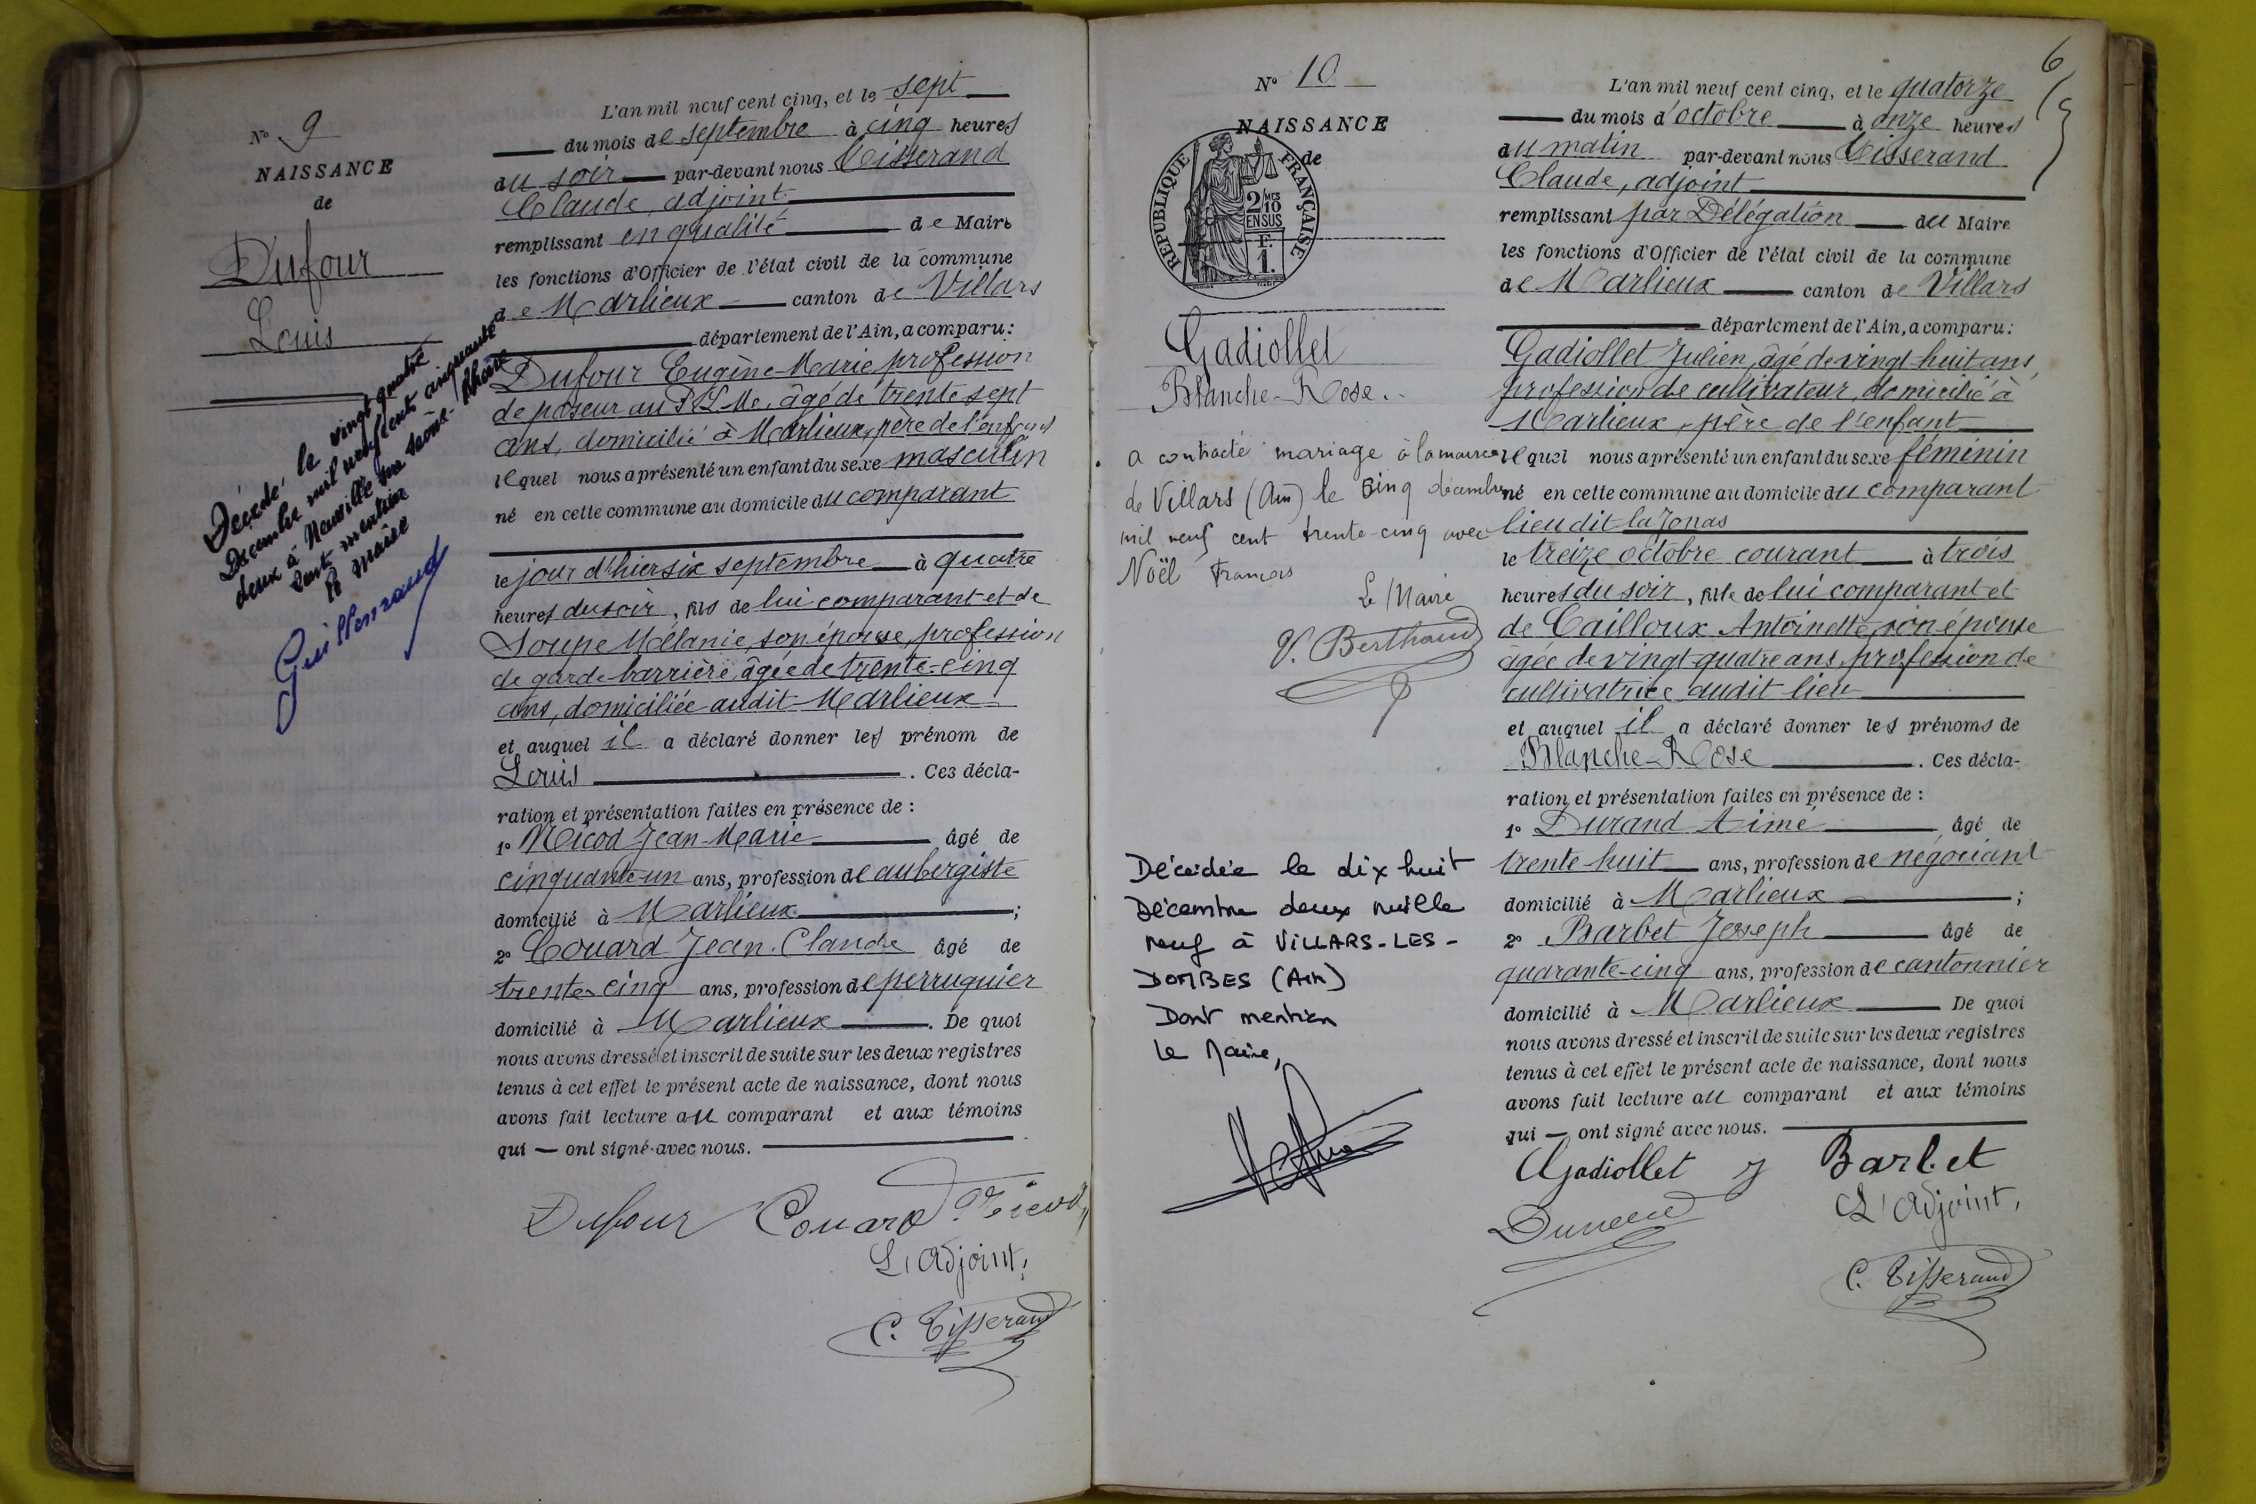 N° 9
NAISSANCE
de
Dufour
Louis
Décédé le vingt quatre
Décembre mil neuf cent cinquante
deux à Neuville sur Saône (Rhône)
Dont mention
le Maire
Guillemaud
L'an mil neuf cent cinq, et le sept
du mois de septembre à cinq heures
du soir par-devant nous Tisserand
Claude, adjoint
remplissant en qualité de Maire
les fonctions d'Officier de l'état civil de la commune
de Marlieux canton de Villars
département de l'Ain, a comparu :
Dufour Eugène-Marie, profession
de poseur au P.L.M., âgé de trente sept
ans, domicilié à Marlieux, père de l'enfant
lequel nous a présenté un enfant du sexe masculin
né en cette commune au domicile du comparant
le jour d'hier six septembre à quatre
heures du soir, fils de lui comparant et de
Soupe Mélanie, son épouse, profession
de garde barrière, âgée de trente-cinq
ans, domiciliée audit Marlieux
et auquel il a déclaré donner les prénom de
Louis . Ces décla-
ration et présentation faites en présence de :
1° Nicod Jean-Marie âgé de
cinquante-un ans, profession de aubergiste
domicilié à Marlieux ;
2° Couard Jean-Claude âgé de
trente-cinq ans, profession de perruquier
domicilié à Marlieux . De quoi
nous avons dressé et inscrit de suite sur les deux registres
tenus à cet effet le présent acte de naissance, dont nous
avons fait lecture au comparant et aux témoins
qui — ont signé avec nous.
Dufour Couard Nicod
L'adjoint,
C. Tisserand
6
N° 10
NAISSANCE
de
REPUBLIQUE FRANÇAISE
2/10 MES
EN SUS
F.
1.
Gadiollet
Blanche-Rose.
a contracté mariage à la mairie
de Villars (Ain) le cinq décembre
mil neuf cent trente-cinq avec
Noël François
Le Maire
V. Berthaud
Décédée le dix huit
Décembre deux mille
neuf à VILLARS-LES-
DOMBES (Ain)
Dont mention
Le Maire,
L'an mil neuf cent cinq, et le quatorze
du mois d'octobre à onze heures
du matin par-devant nous Tisserand
Claude, adjoint
remplissant par Délégation du Maire
les fonctions d'Officier de l'état civil de la commune
de Marlieux canton de Villars
département de l'Ain, a comparu :
Gadiollet Julien, âgé de vingt-huit ans,
profession de cultivateur, domicilié à
Marlieux, père de l'enfant
lequel nous a présenté un enfant du sexe féminin
né en cette commune au domicile du comparant
lieu dit la Jonas
le treize octobre courant à trois
heures du soir, fille de lui comparant et
de Cailloux Antoinette, son épouse
âgée de vingt-quatre ans, profession de
cultivatrice audit lieu
et auquel il a déclaré donner les prénoms de
Blanche-Rose . Ces décla-
ration et présentation faites en présence de :
1° Durand Aimé âgé de
trente huit ans, profession de négociant
domicilié à Marlieux ;
2° Barbet Joseph âgé de
quarante-cinq ans, profession de cantonnier
domicilié à Marlieux De quoi
nous avons dressé et inscrit de suite sur les deux registres
tenus à cet effet le présent acte de naissance, dont nous
avons fait lecture au comparant et aux témoins
qui — ont signé avec nous.
Gadiollet J Barbet
Durand L'adjoint,
C. Tisserand